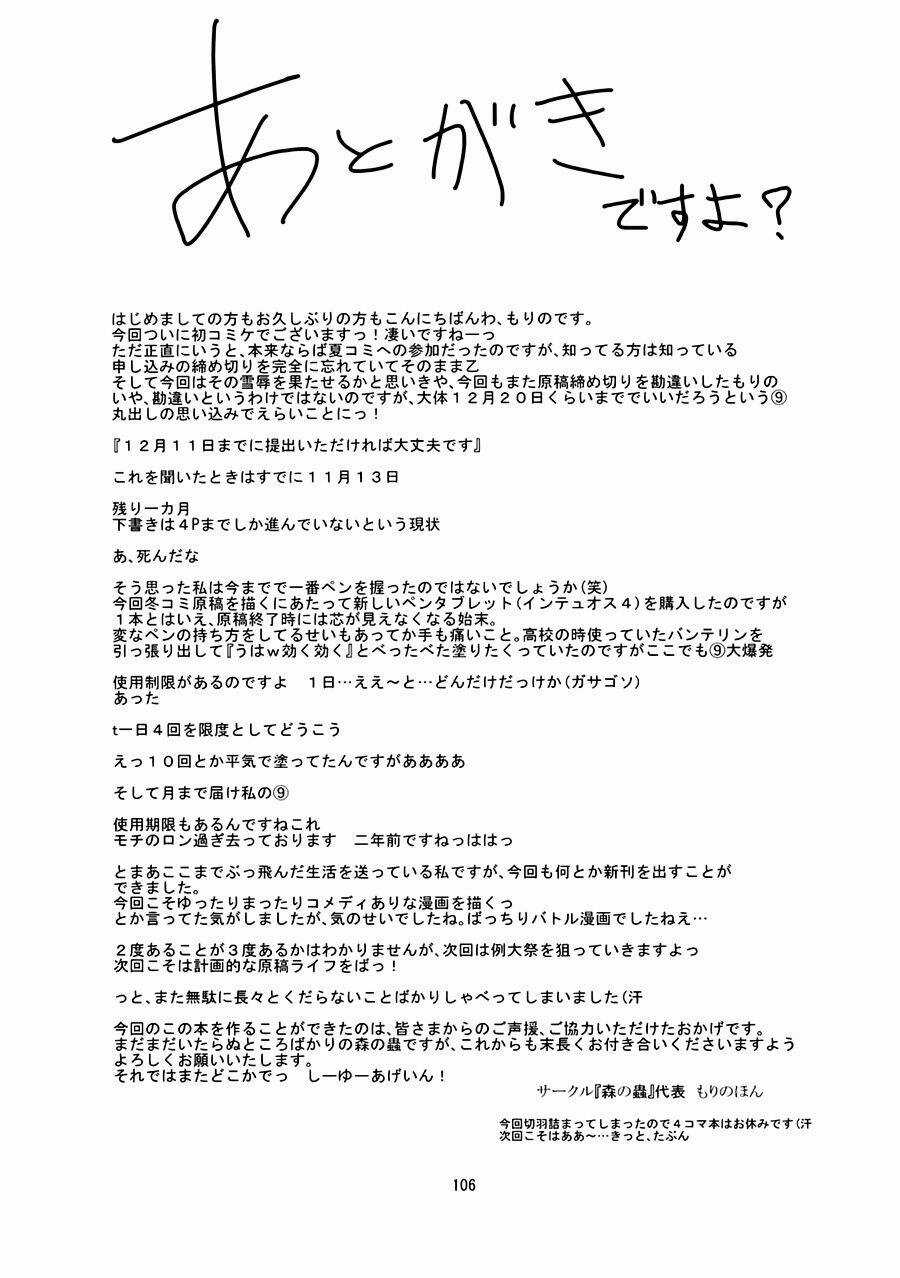 あとがき
ですよ？
はじめましての方もお久しぶりの方もこんにちばんわ、もりのです。
今回ついに初コミケでございますっ！凄いですねーっ
ただ正直にいうと、本来ならば夏コミへの参加だったのですが、知ってる方は知っている
申し込みの締め切りを完全に忘れていてそのまま乙
そして今回はその雪辱を果たせるかと思いきや、今回もまた原稿締め切りを勘違いしたもりの
いや、勘違いというわけではないのですが、大体１２月２０日くらいまででいいだろうという⑨
丸出しの思い込みでえらいことにっ！
『１２月１１日までに提出いただければ大丈夫です』
これを聞いたときはすでに１１月１３日
残り一カ月
下書きは４Pまでしか進んでいないという現状
あ、死んだな
そう思った私は今までで一番ペンを握ったのではないでしょうか（笑）
今回冬コミ原稿を描くにあたって新しいペンタブレット（インテュオス４）を購入したのですが
１本とはいえ、原稿終了時には芯が見えなくなる始末。
変なペンの持ち方をしてるせいもあってか手も痛いこと。高校の時使っていたバンテリンを
引っ張り出して『うはｗ効く効く』とべったべた塗りたくっていたのですがここでも⑨大爆発
使用制限があるのですよ　１日…ええ～と…どんだけだっけか（ガサゴソ）
あった
t一日４回を限度としてどうこう
えっ１０回とか平気で塗ってたんですがああああ
そして月まで届け私の⑨
使用期限もあるんですねこれ
モチのロン過ぎ去っております　二年前ですねっははっ
とまあここまでぶっ飛んだ生活を送っている私ですが、今回も何とか新刊を出すことが
できました。
今回こそゆったりまったりコメディありな漫画を描くっ
とか言ってた気がしましたが、気のせいでしたね。ばっちりバトル漫画でしたねえ…
２度あることが３度あるかはわかりませんが、次回は例大祭を狙っていきますよっ
次回こそは計画的な原稿ライフをばっ！
っと、また無駄に長々とくだらないことばかりしゃべってしまいました（汗
今回のこの本を作ることができたのは、皆さまからのご声援、ご協力いただけたおかげです。
まだまだいたらぬところばかりの森の蟲ですが、これからも末長くお付き合いくださいますよう
よろしくお願いいたします。
それではまたどこかでっ　しーゆーあげいん！
サークル『森の蟲』代表　もりのほん
今回切羽詰まってしまったので４コマ本はお休みです（汗
次回こそはああ～…きっと、たぶん
106